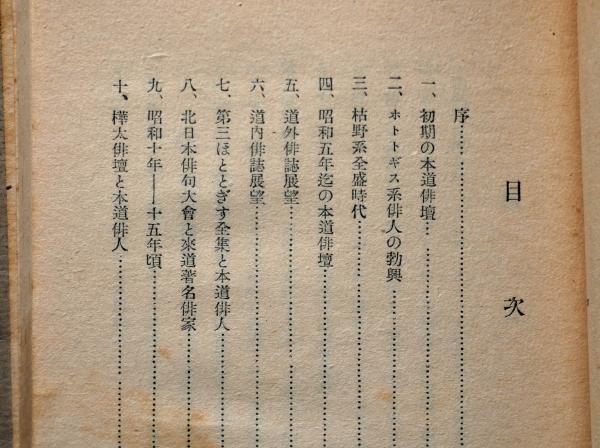 目次
序……………………
一、初期の本道俳壇……………………
二、ホトトギス系俳人の勃興……………………
三、枯野系全盛時代……………………
四、昭和五年迄の本道俳壇……………………
五、道外俳誌展望……………………
六、道内俳誌展望……………………
七、第三ほととぎす全集と本道俳人……………………
八、北日本俳句大會と來道著名俳家……………………
九、昭和十年――十五年頃……………………
十、樺太俳壇と本道俳人……………………